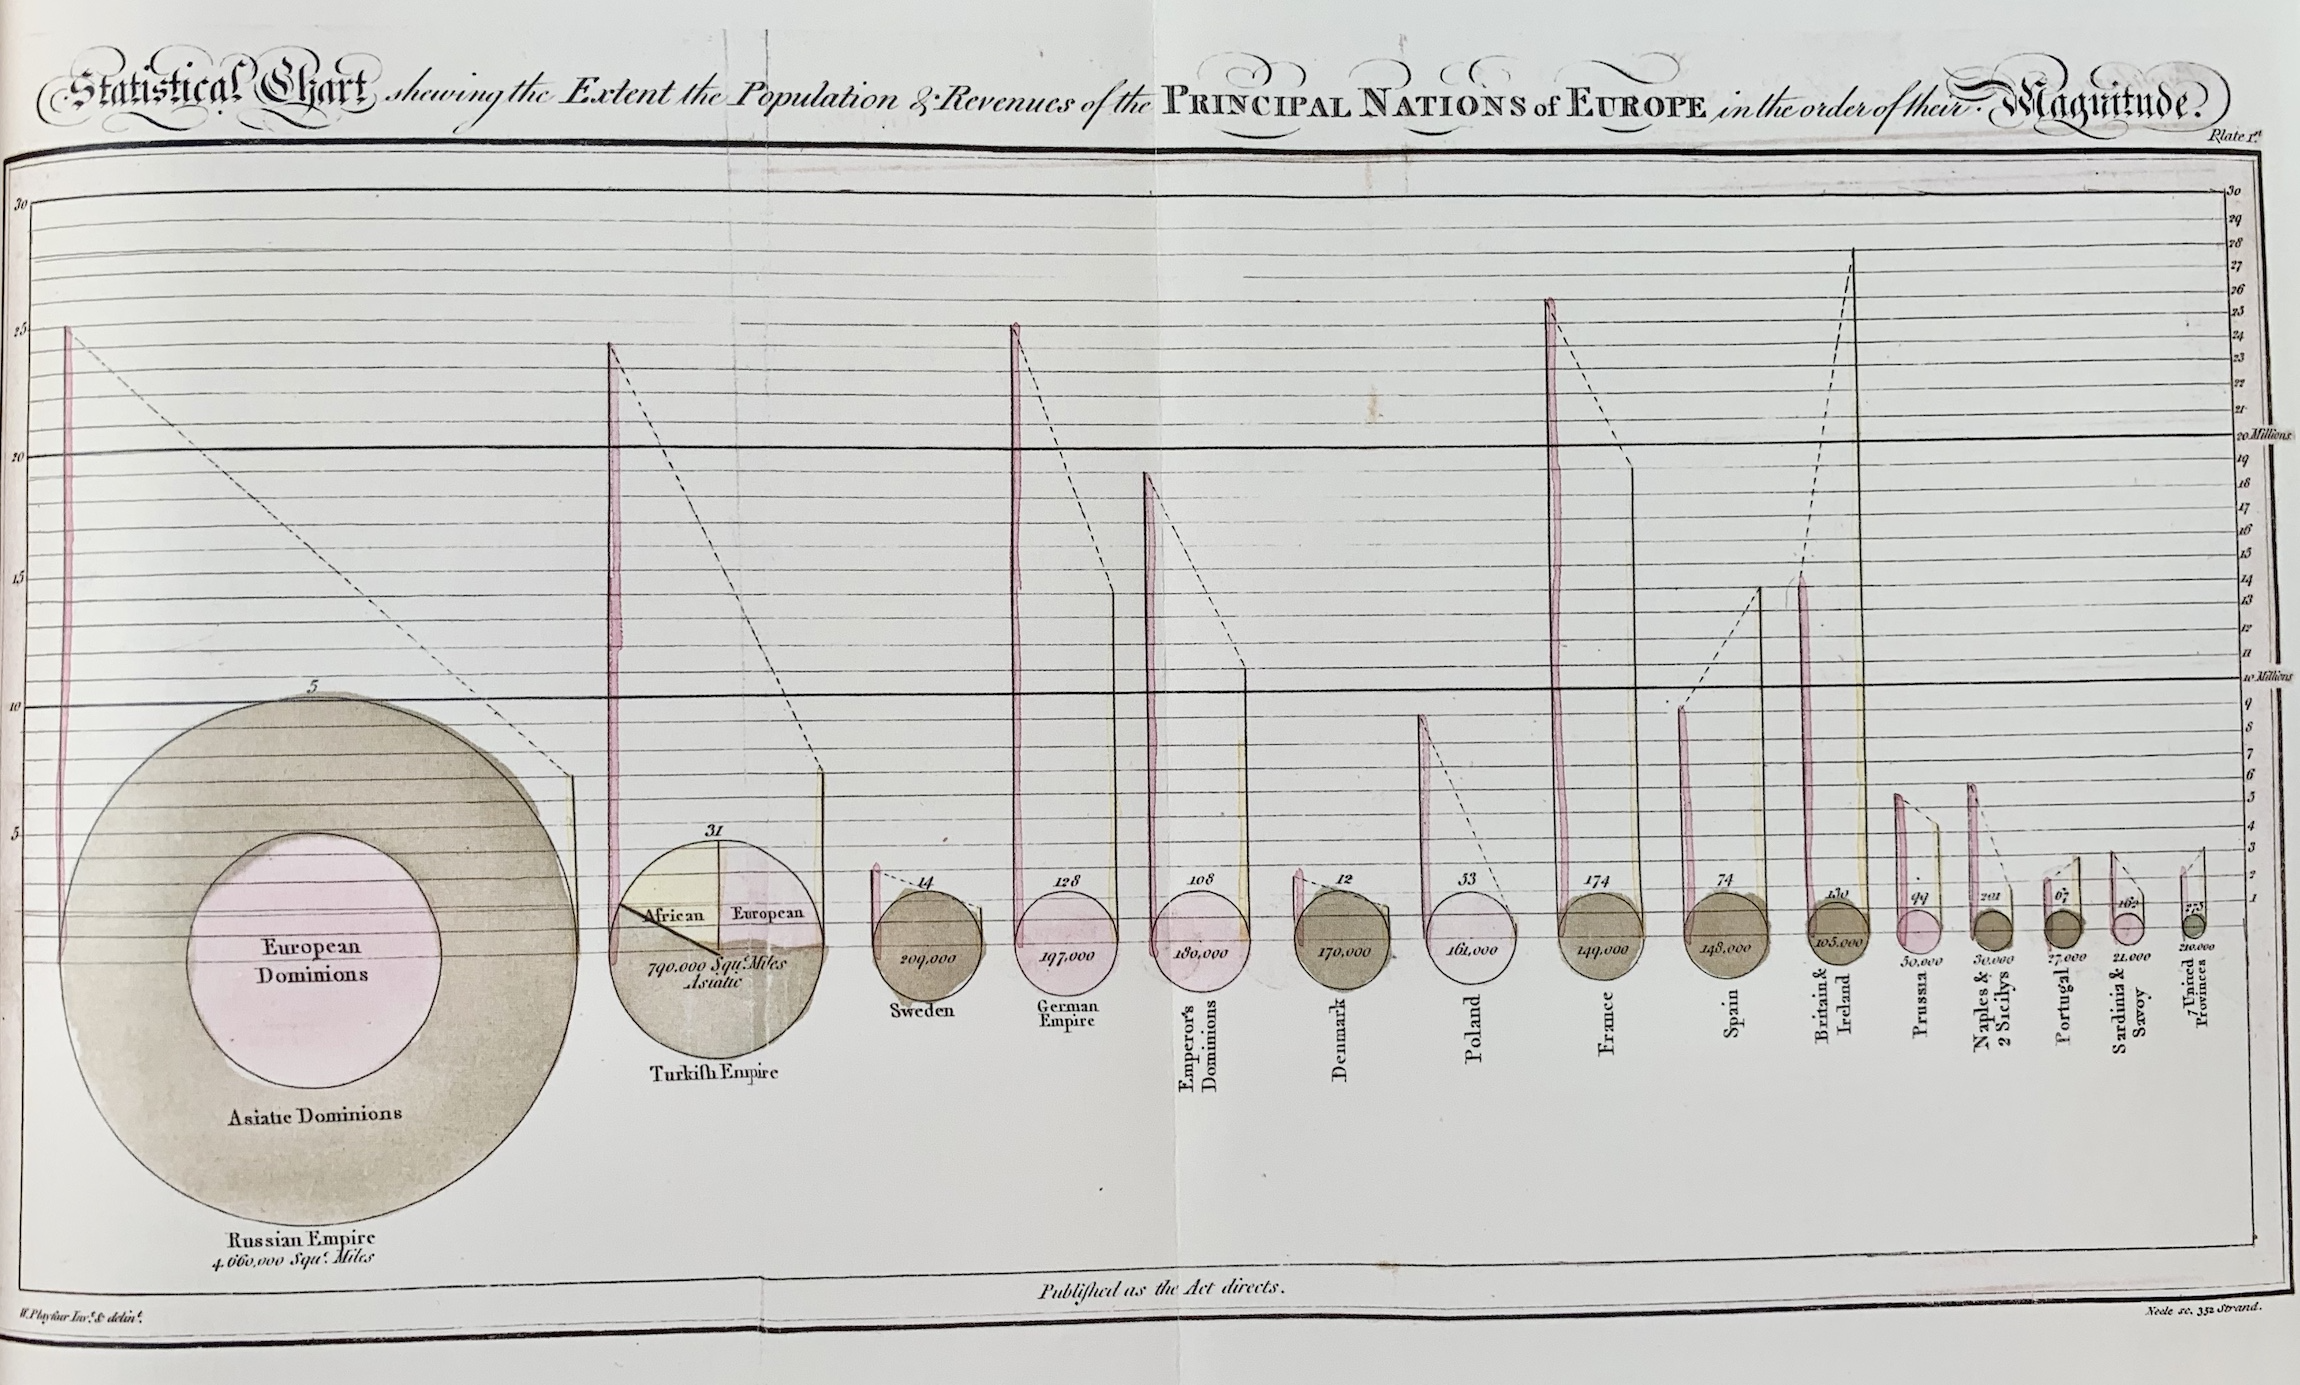 Statistical Chart shewing the Extent the Population & Revenues of the PRINCIPAL NATIONS of EUROPE in the order of their Magnitude.
Plate 1st
30
25
20
15
10
5
30
29
28
27
26
25
24
23
22
21
20 Millions
19
18
17
16
15
14
13
12
11
10 Millions
9
8
7
6
5
4
3
2
1
5
European
Dominions
Asiatic Dominions
Russian Empire
4.660,000 Squr. Miles
31
African
European
790.000 Squr. Miles
Asiatic
Turkiſh Empire
14
209,000
Sweden
128
197,000
German
Empire
108
180,000
Emperor's
Dominions
12
170,000
Denmark
53
161,000
Poland
174
149,000
France
74
148,000
Spain
130
105,000
Britain &
Ireland
99
50,000
Prussia
201
30,000
Naples &
2 Sicilys
67
27,000
Portugal
162
21,000
Sardinia &
Savoy
275
210.000
7 United
Provinces
Publiſhed as the Act directs.
W. Playfair Invt. & delint.
Neele sc. 352 Strand.